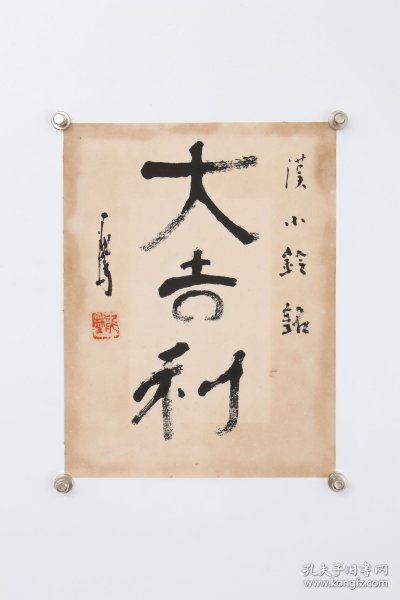 漢小鈴銘
大吉利
孔夫子旧书网
www.kongfz.com